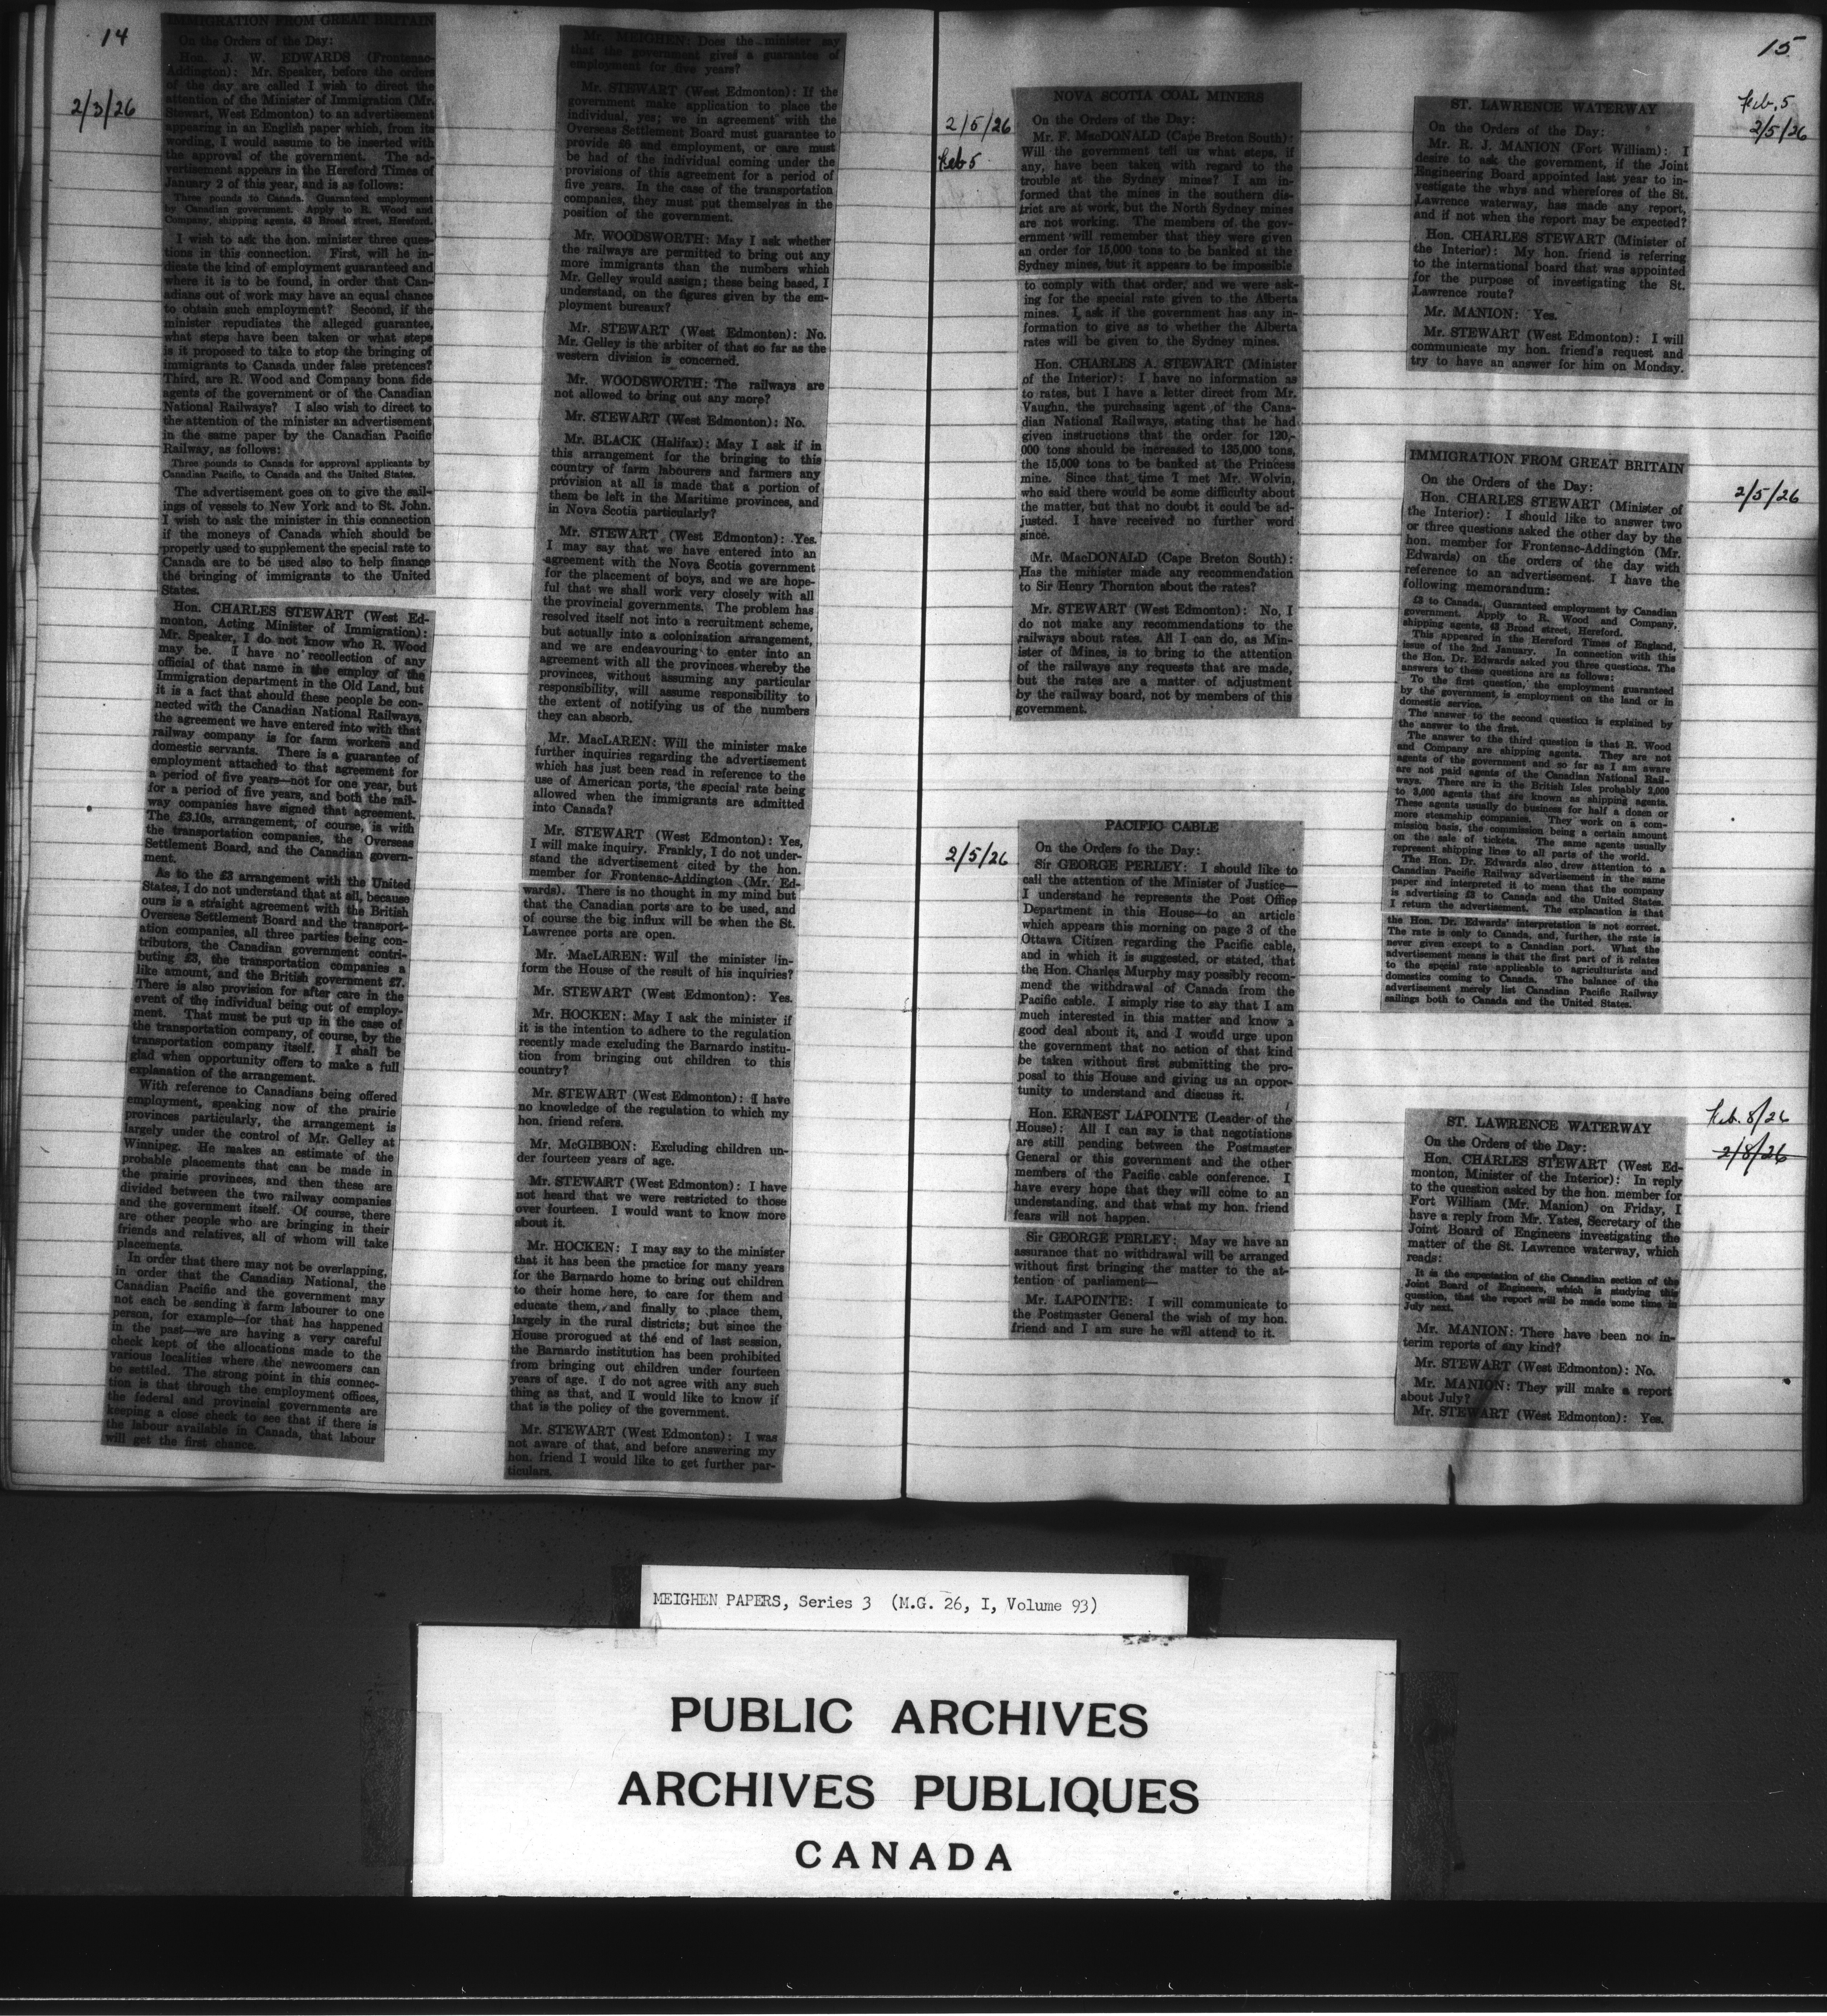 14
2/3/26
IMMIGRATION FROM GREAT BRITAIN
On the Orders of the Day:
Hon. J. W. EDWARDS (Frontenac-
Addington): Mr. Speaker, before the orders
of the day are called I wish to direct the
attention of the Minister of Immigration (Mr.
Stewart, West Edmonton) to an advertisement
appearing in an English paper which, from its
wording, I would assume to be inserted with
the approval of the government. The ad-
vertisement appears in the Hereford Times of
January 2 of this year, and is as follows:
Three pounds to Canada. Guaranteed employment
by Canadian government. Apply to R. Wood and
Company, shipping agents, 43 Broad street, Hereford.
I wish to ask the hon. minister three ques-
tions in this connection. First, will he in-
dicate the kind of employment guaranteed and
where it is to be found, in order that Can-
adians out of work may have an equal chance
to obtain such employment? Second, if the
minister repudiates the alleged guarantee,
what steps have been taken or what steps
is it proposed to take to stop the bringing of
immigrants to Canada under false pretences?
Third, are R. Wood and Company bona fide
agents of the government or of the Canadian
National Railways? I also wish to direct to
the attention of the minister an advertisement
in the same paper by the Canadian Pacific
Railway, as follows:
Three pounds to Canada for approval applicants by
Canadian Pacific, to Canada and the United States.
The advertisement goes on to give the sail-
ings of vessels to New York and to St. John.
I wish to ask the minister in this connection
if the moneys of Canada which should be
properly used to supplement the special rate to
Canada are to be used also to help finance
the bringing of immigrants to the United
States.
Hon. CHARLES STEWART (West Ed-
monton, Acting Minister of Immigration):
Mr. Speaker, I do not know who R. Wood
may be. I have no recollection of any
official of that name in the employ of the
Immigration department in the Old Land, but
it is a fact that should these people be con-
nected with the Canadian National Railways,
the agreement we have entered into with that
railway company is for farm workers and
domestic servants. There is a guarantee of
employment attached to that agreement for
a period of five years—not for one year, but
for a period of five years, and both the rail-
way companies have signed that agreement.
The £3.10s, arrangement, of course, is with
the transportation companies, the Overseas
Settlement Board, and the Canadian govern-
ment.
As to the £3 arrangement with the United
States, I do not understand that at all, because
ours is a straight agreement with the British
Overseas Settlement Board and the transport-
ation companies, all three parties being con-
tributors, the Canadian government contri-
buting £3, the transportation companies a
like amount, and the British government £7.
There is also provision for after care in the
event of the individual being out of employ-
ment. That must be put up in the case of
the transportation company, of course, by the
transportation company itself. I shall be
glad when opportunity offers to make a full
explanation of the arrangement.
With reference to Canadians being offered
employment, speaking now of the prairie
provinces particularly, the arrangement is
largely under the control of Mr. Gelley at
Winnipeg. He makes an estimate of the
probable placements that can be made in
the prairie provinces, and then these are
divided between the two railway companies
and the government itself. Of course, there
are other people who are bringing in their
friends and relatives, all of whom will take
placements.
In order that there may not be overlapping,
in order that the Canadian National, the
Canadian Pacific and the government may
not each be sending a farm labourer to one
person, for example—for that has happened
in the past—we are having a very careful
check kept of the allocations made to the
various localities where the newcomers can
be settled. The strong point in this connec-
tion is that through the employment offices,
the federal and provincial governments are
keeping a close check to see that if there is
the labour available in Canada, that labour
will get the first chance.
Mr. MEIGHEN: Does the minister say
that the government gives a guarantee of
employment for five years?
Mr. STEWART (West Edmonton): If the
government make application to place the
individual, yes; we in agreement with the
Overseas Settlement Board must guarantee to
provide £6 and employment, or care must
be had of the individual coming under the
provisions of this agreement for a period of
five years. In the case of the transportation
companies, they must put themselves in the
position of the government.
Mr. WOODSWORTH: May I ask whether
the railways are permitted to bring out any
more immigrants than the numbers which
Mr. Gelley would assign; these being based, I
understand, on the figures given by the em-
ployment bureaux?
Mr. STEWART (West Edmonton): No.
Mr. Gelley is the arbiter of that so far as the
western division is concerned.
Mr. WOODSWORTH: The railways are
not allowed to bring out any more?
Mr. STEWART (West Edmonton): No.
Mr. BLACK (Halifax): May I ask if in
this arrangement for the bringing to this
country of farm labourers and farmers any
provision at all is made that a portion of
them be left in the Maritime provinces, and
in Nova Scotia particularly?
Mr. STEWART (West Edmonton): Yes.
I may say that we have entered into an
agreement with the Nova Scotia government
for the placement of boys, and we are hope-
ful that we shall work very closely with all
the provincial governments. The problem has
resolved itself not into a recruitment scheme,
but actually into a colonization arrangement,
and we are endeavouring to enter into an
agreement with all the provinces whereby the
provinces, without assuming any particular
responsibility, will assume responsibility to
the extent of notifying us of the numbers
they can absorb.
Mr. MacLAREN: Will the minister make
further inquiries regarding the advertisement
which has just been read in reference to the
use of American ports, the special rate being
allowed when the immigrants are admitted
into Canada?
Mr. STEWART (West Edmonton): Yes,
I will make inquiry. Frankly, I do not under-
stand the advertisement cited by the hon.
member for Frontenac-Addington (Mr. Ed-
wards). There is no thought in my mind but
that the Canadian ports are to be used, and
of course the big influx will be when the St.
Lawrence ports are open.
Mr. MacLAREN: Will the minister in-
form the House of the result of his inquiries?
Mr. STEWART (West Edmonton): Yes.
Mr. HOCKEN: May I ask the minister if
it is the intention to adhere to the regulation
recently made excluding the Barnardo institu-
tion from bringing out children to this
country?
Mr. STEWART (West Edmonton): I have
no knowledge of the regulation to which my
hon. friend refers.
Mr. McGIBBON: Excluding children un-
der fourteen years of age.
Mr. STEWART (West Edmonton): I have
not heard that we were restricted to those
over fourteen. I would want to know more
about it.
Mr. HOCKEN: I may say to the minister
that it has been the practice for many years
for the Barnardo home to bring out children
to their home here, to care for them and
educate them, and finally to place them,
largely in the rural districts; but since the
House prorogued at the end of last session,
the Barnardo institution has been prohibited
from bringing out children under fourteen
years of age. I do not agree with any such
thing as that, and I would like to know if
that is the policy of the government.
Mr. STEWART (West Edmonton): I was
not aware of that, and before answering my
hon. friend I would like to get further par-
ticulars.
2/5/26
Feb 5
NOVA SCOTIA COAL MINERS
On the Orders of the Day:
Mr. F. MacDONALD (Cape Breton South):
Will the government tell us what steps, if
any, have been taken with regard to the
trouble at the Sydney mines? I am in-
formed that the mines in the southern dis-
trict are at work, but the North Sydney mines
are not working. The members of the gov-
ernment will remember that they were given
an order for 15,000 tons to be banked at the
Sydney mines, but it appears to be impossible
to comply with that order, and we were ask-
ing for the special rate given to the Alberta
mines. I ask if the government has any in-
formation to give as to whether the Alberta
rates will be given to the Sydney mines.
Hon. CHARLES A. STEWART (Minister
of the Interior): I have no information as
to rates, but I have a letter direct from Mr.
Vaughn, the purchasing agent of the Cana-
dian National Railways, stating that he had
given instructions that the order for 120,-
000 tons should be increased to 135,000 tons,
the 15,000 tons to be banked at the Princess
mine. Since that time I met Mr. Wolvin,
who said there would be some difficulty about
the matter, but that no doubt it could be ad-
justed. I have received no further word
since.
Mr. MacDONALD (Cape Breton South):
Has the minister made any recommendation
to Sir Henry Thornton about the rates?
Mr. STEWART (West Edmonton): No, I
do not make any recommendations to the
railways about rates. All I can do, as Min-
ister of Mines, is to bring to the attention
of the railways any requests that are made,
but the rates are a matter of adjustment
by the railway board, not by members of this
government.
2/5/26
PACIFIC CABLE
On the Orders fo the Day:
Sir GEORGE PERLEY: I should like to
call the attention of the Minister of Justice—
I understand he represents the Post Office
Department in this House—to an article
which appears this morning on page 3 of the
Ottawa Citizen regarding the Pacific cable,
and in which it is suggested, or stated, that
the Hon. Charles Murphy may possibly recom-
mend the withdrawal of Canada from the
Pacific cable. I simply rise to say that I am
much interested in this matter and know a
good deal about it, and I would urge upon
the government that no action of that kind
be taken without first submitting the pro-
posal to this House and giving us an oppor-
tunity to understand and discuss it.
Hon. ERNEST LAPOINTE (Leader of the
House): All I can say is that negotiations
are still pending between the Postmaster
General or this government and the other
members of the Pacific cable conference. I
have every hope that they will come to an
understanding, and that what my hon. friend
fears will not happen.
Sir GEORGE PERLEY: May we have an
assurance that no withdrawal will be arranged
without first bringing the matter to the at-
tention of parliament—
Mr. LAPOINTE: I will communicate to
the Postmaster General the wish of my hon.
friend and I am sure he will attend to it.
15
Feb. 5
2/5/26
ST. LAWRENCE WATERWAY
On the Orders of the Day:
Mr. R. J. MANION (Fort William): I
desire to ask the government, if the Joint
Engineering Board appointed last year to in-
vestigate the whys and wherefores of the St.
Lawrence waterway, has made any report,
and if not when the report may be expected?
Hon. CHARLES STEWART (Minister of
the Interior): My hon. friend is referring
to the international board that was appointed
for the purpose of investigating the St.
Lawrence route?
Mr. MANION: Yes.
Mr. STEWART (West Edmonton): I will
communicate my hon. friend's request and
try to have an answer for him on Monday.
2/5/26
IMMIGRATION FROM GREAT BRITAIN
On the Orders of the Day:
Hon. CHARLES STEWART (Minister of
the Interior): I should like to answer two
or three questions asked the other day by the
hon. member for Frontenac-Addington (Mr.
Edwards) on the orders of the day with
reference to an advertisement. I have the
following memorandum:
£3 to Canada. Guaranteed employment by Canadian
government. Apply to R. Wood and Company,
shipping agents, 43 Broad street, Hereford.
This appeared in the Hereford Times of England,
issue of the 2nd January. In connection with this
the Hon. Dr. Edwards asked you three questions. The
answers to these questions are as follows:
To the first question, the employment guaranteed
by the government, is employment on the land or in
domestic service.
The answer to the second question is explained by
the answer to the first.
The answer to the third question is that R. Wood
and Company are shipping agents. They are not
agents of the government and so far as I am aware
are not paid agents of the Canadian National Rail-
ways. There are in the British Isles probably 2,000
to 3,000 agents that are known as shipping agents.
These agents usually do business for half a dozen or
more steamship companies. They work on a com-
mission basis, the commission being a certain amount
on the sale of tickets. The same agents usually
represent shipping lines to all parts of the world.
The Hon. Dr. Edwards also drew attention to a
Canadian Pacific Railway advertisement in the same
paper and interpreted it to mean that the company
is advertising £3 to Canada and the United States.
I return the advertisement. The explanation is that
the Hon. Dr. Edwards' interpretation is not correct.
The rate is only to Canada, and, further, the rate is
never given except to a Canadian port. What the
advertisement means is that the first part of it relates
to the special rate applicable to agriculturists and
domestics coming to Canada. The balance of the
advertisement merely list Canadian Pacific Railway
sailings both to Canada and the United States.
Feb. 8/26
2/8/26
ST. LAWRENCE WATERWAY
On the Orders of the Day:
Hon. CHARLES STEWART (West Ed-
monton, Minister of the Interior): In reply
to the question asked by the hon. member for
Fort William (Mr. Manion) on Friday, I
have a reply from Mr. Yates, Secretary of the
Joint Board of Engineers investigating the
matter of the St. Lawrence waterway, which
reads:
It is the expectation of the Canadian section of the
Joint Board of Engineers, which is studying this
question, that the report will be made some time in
July next.
Mr. MANION: There have been no in-
terim reports of any kind?
Mr. STEWART (West Edmonton): No.
Mr. MANION: They will make a report
about July?
Mr. STEWART (West Edmonton): Yes.
MEIGHEN PAPERS, Series 3 (M.G. 26, I, Volume 93)
PUBLIC ARCHIVES
ARCHIVES PUBLIQUES
CANADA